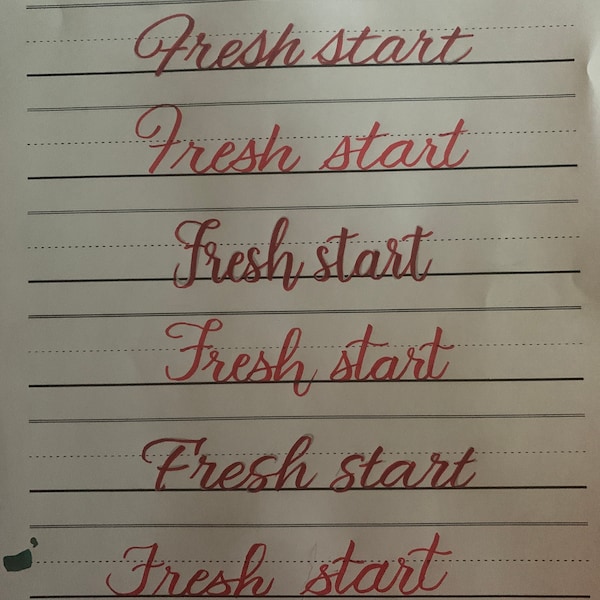 Fresh start
Fresh start
Fresh start
Fresh start
Fresh start
Fresh start